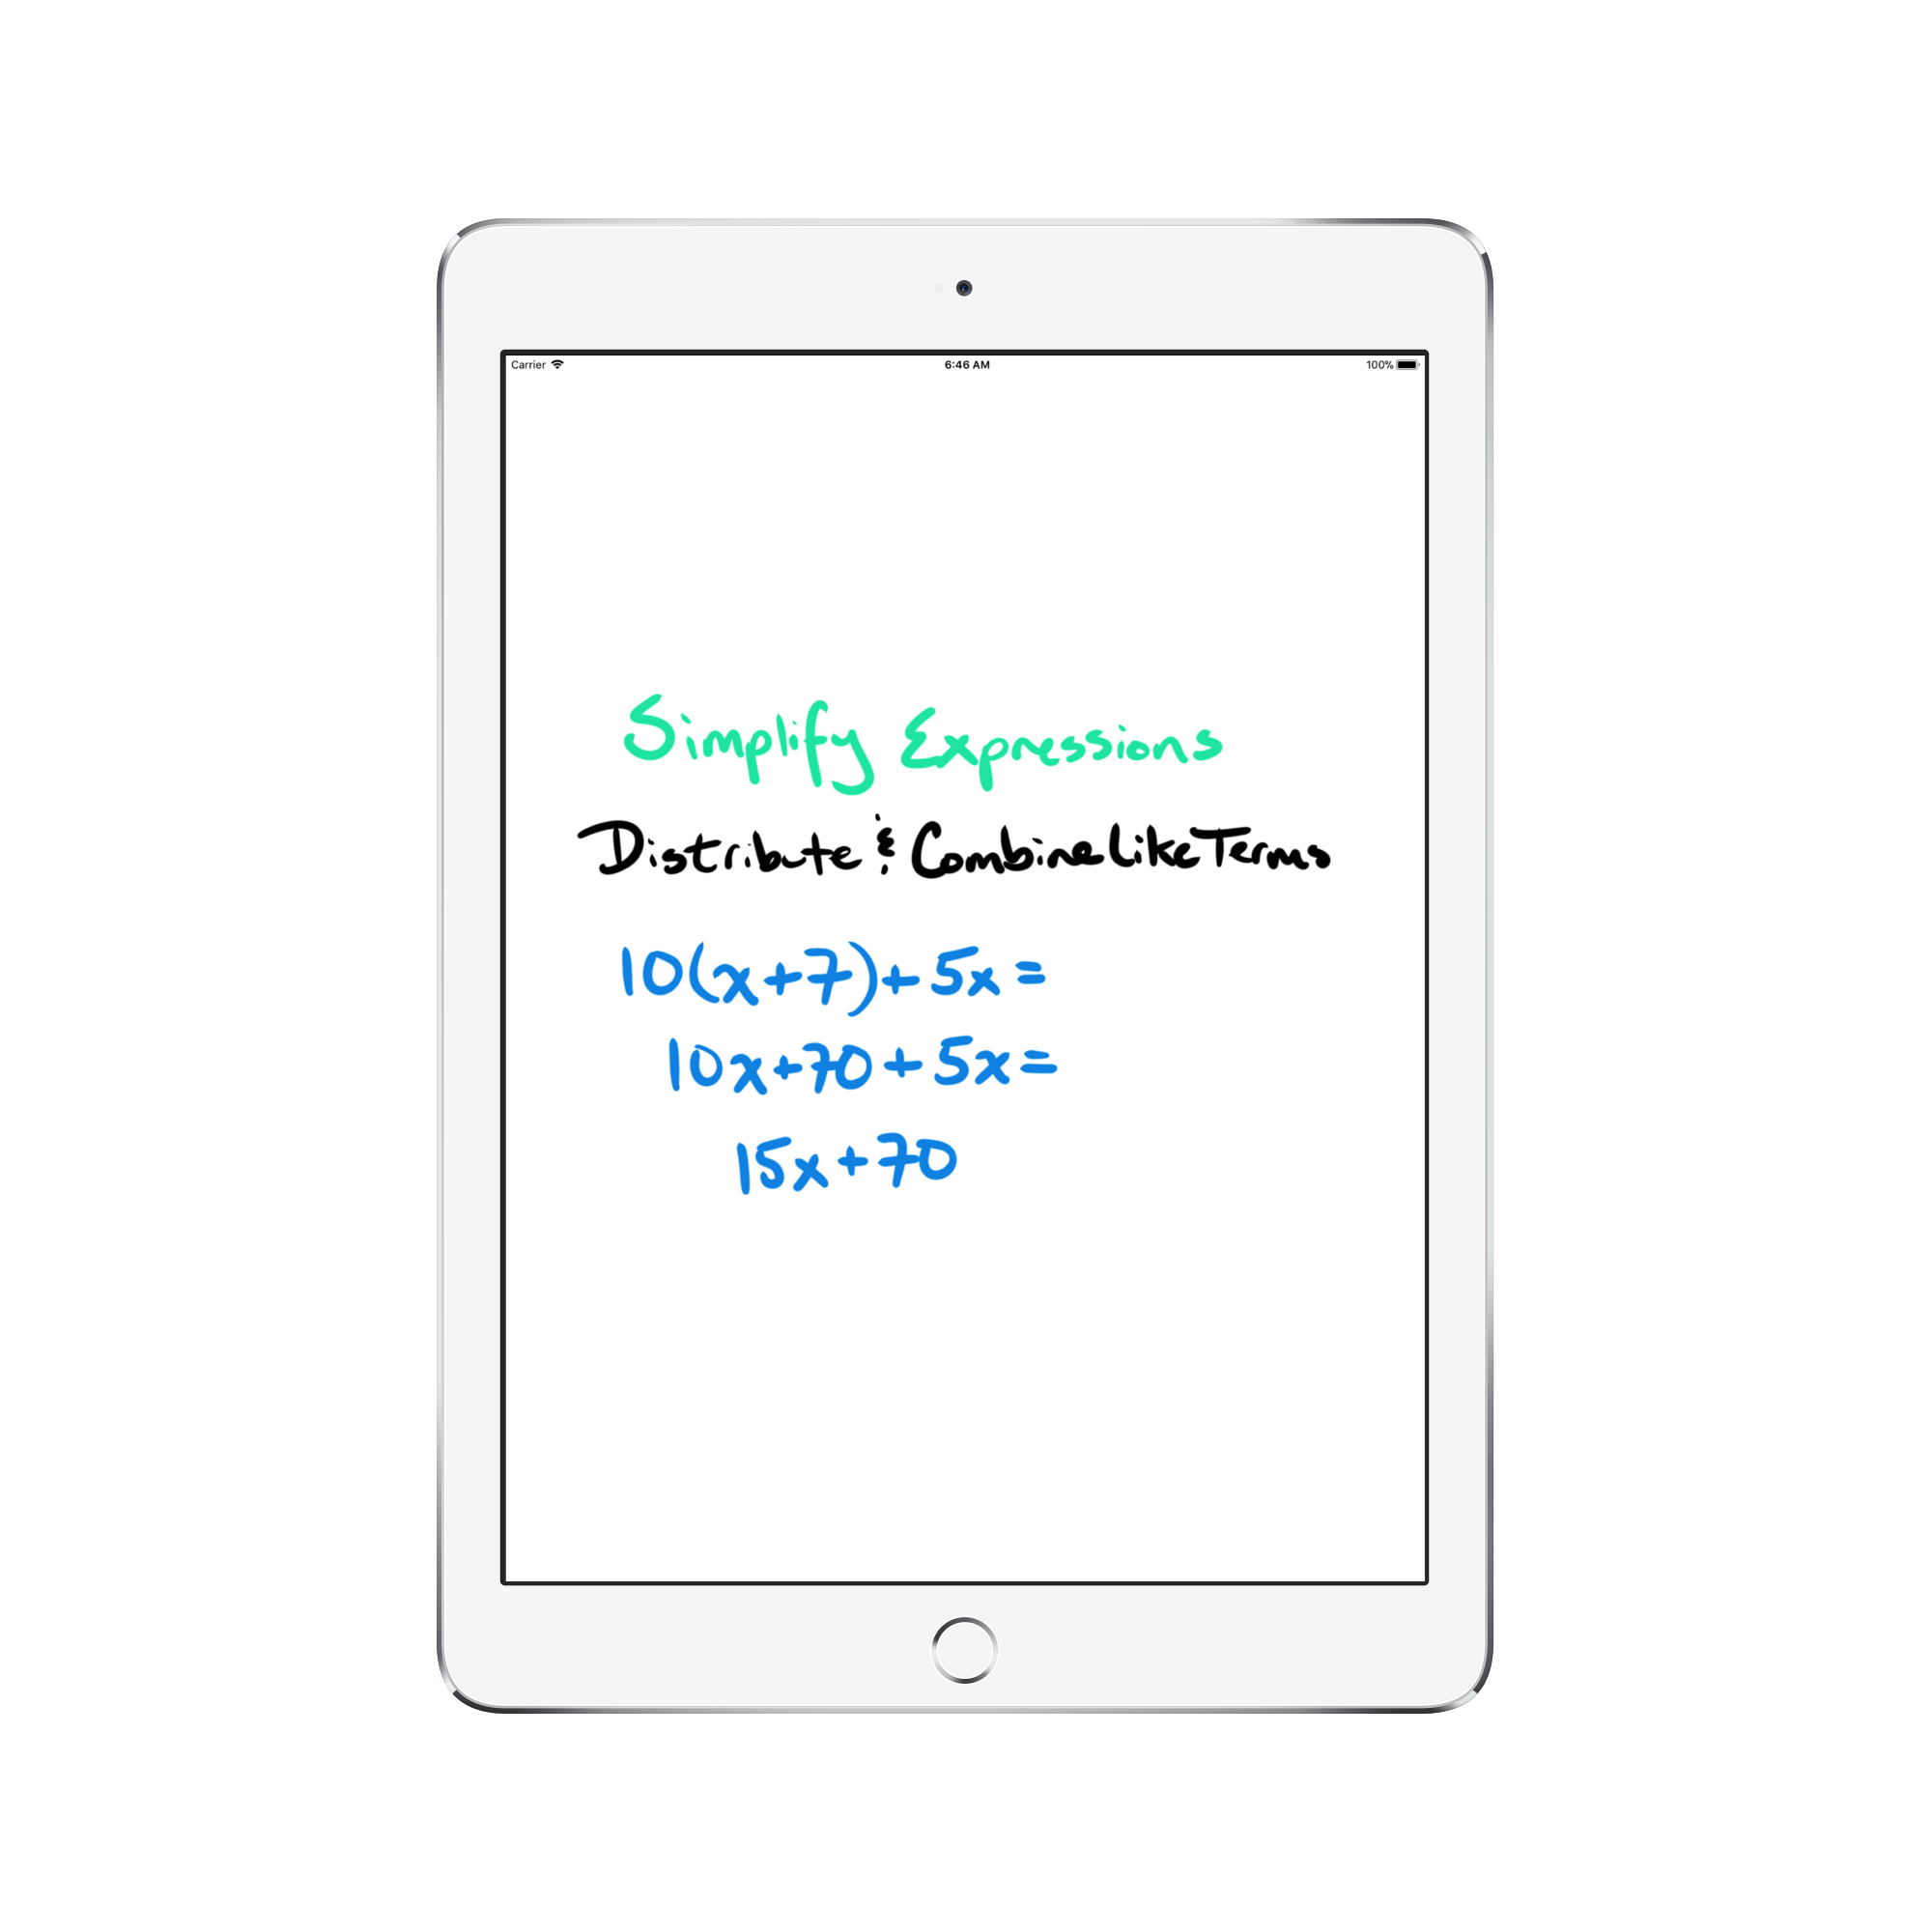 Carrier 6:46 AM 100%
Simplify Expressions
Distribute & Combine Like Terms
10(x+7)+5x=
10x+70+5x=
15x+70